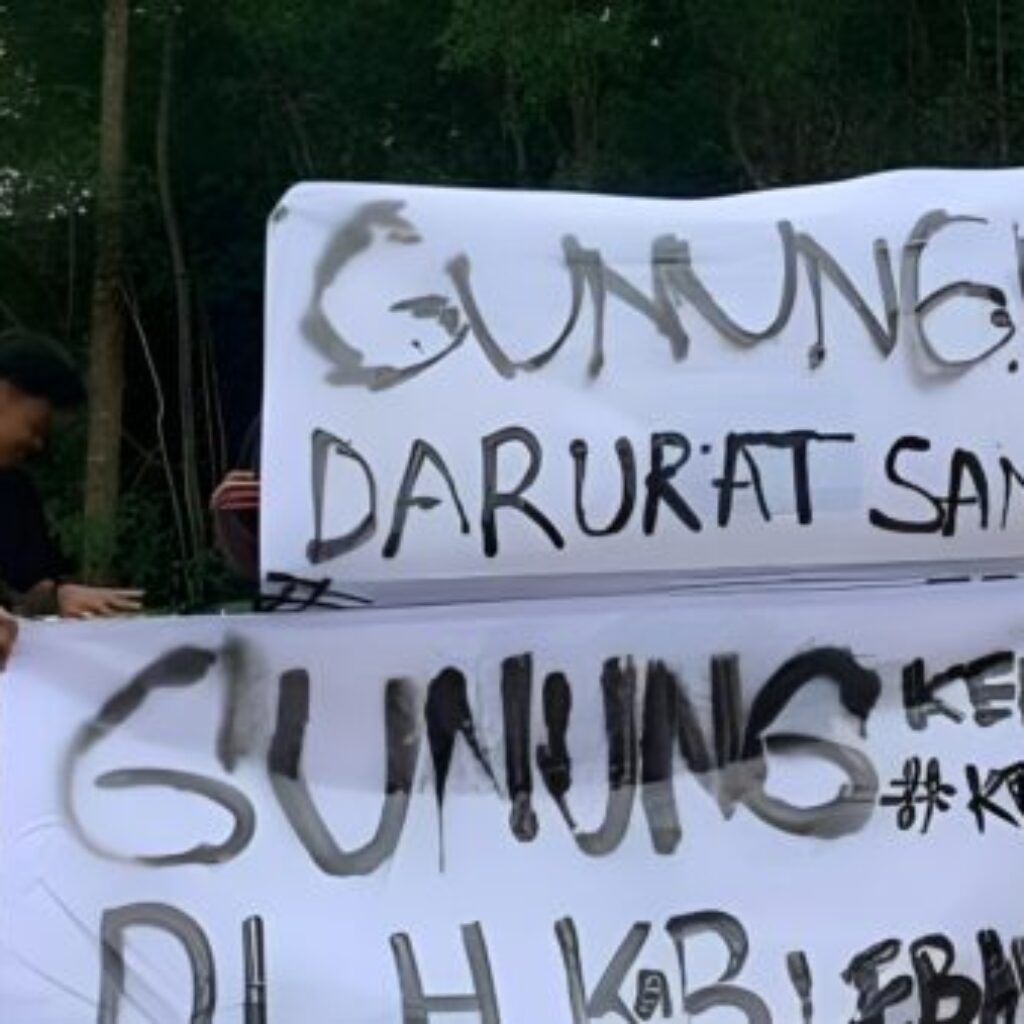 GUNUNG!
DARURAT SAM
#
GUNUNG KE
#K
DLH KAB. LEBAK